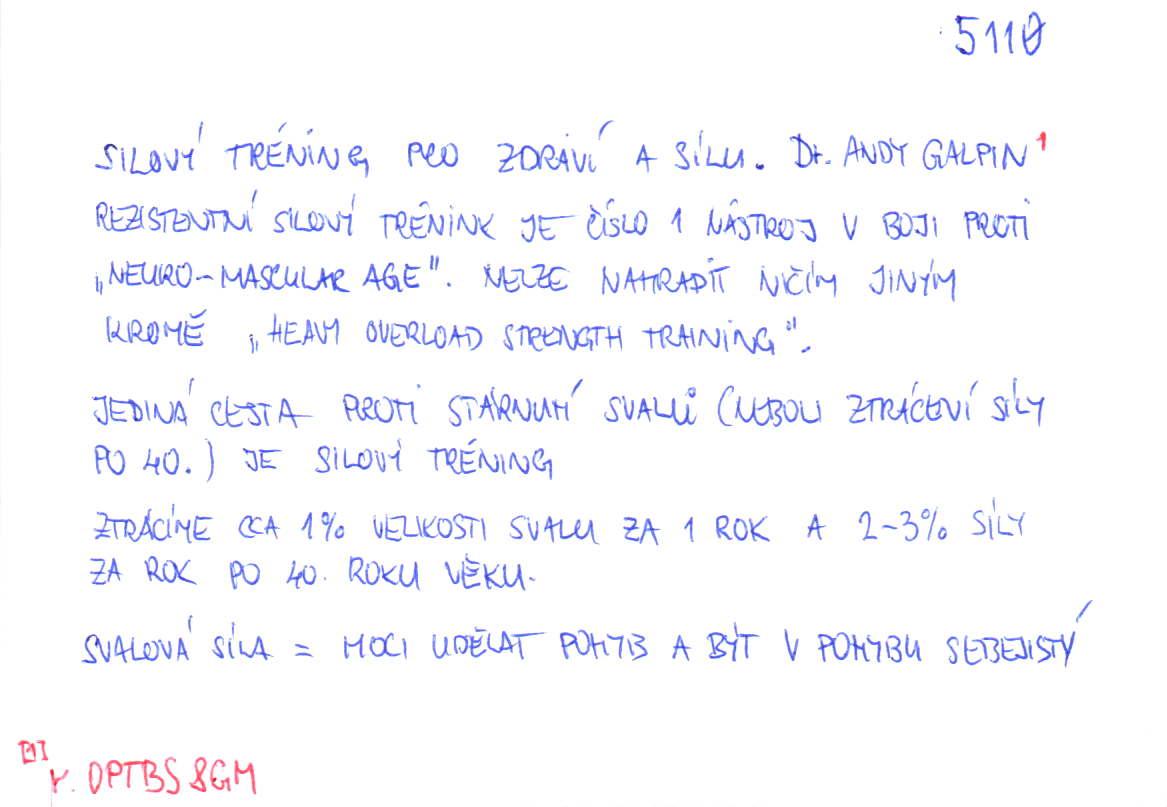 5110
SILOVÝ TRÉNING PRO ZDRAVÍ A SÍLU. Dr. ANDY GALPIN 1
REZISTENTNÍ SILOVÝ TRÉNINK JE ČÍSLO 1 NÁSTROJ V BOJI PROTI
„NEURO-MASCULAR AGE". NELZE NAHRADIT NIČÍM JINÝM
KROMĚ „HEAVY OVERLOAD STRENGTH TRAINING".
JEDINÁ CESTA PROTI STÁRNUTÍ SVALŮ (NEBOLI ZTRÁCENÍ SÍLY
PO 40.) JE SILOVÝ TRÉNING
ZTRÁCÍME CCA 1% VELIKOSTI SVALU ZA 1 ROK A 2-3% SÍLY
ZA ROK PO 40. ROKU VĚKU.
SVALOVÁ SÍLA = MOCI UDĚLAT POHYB A BÝT V POHYBU SEBEJISTÝ
[1]
r. OPTBS8GM